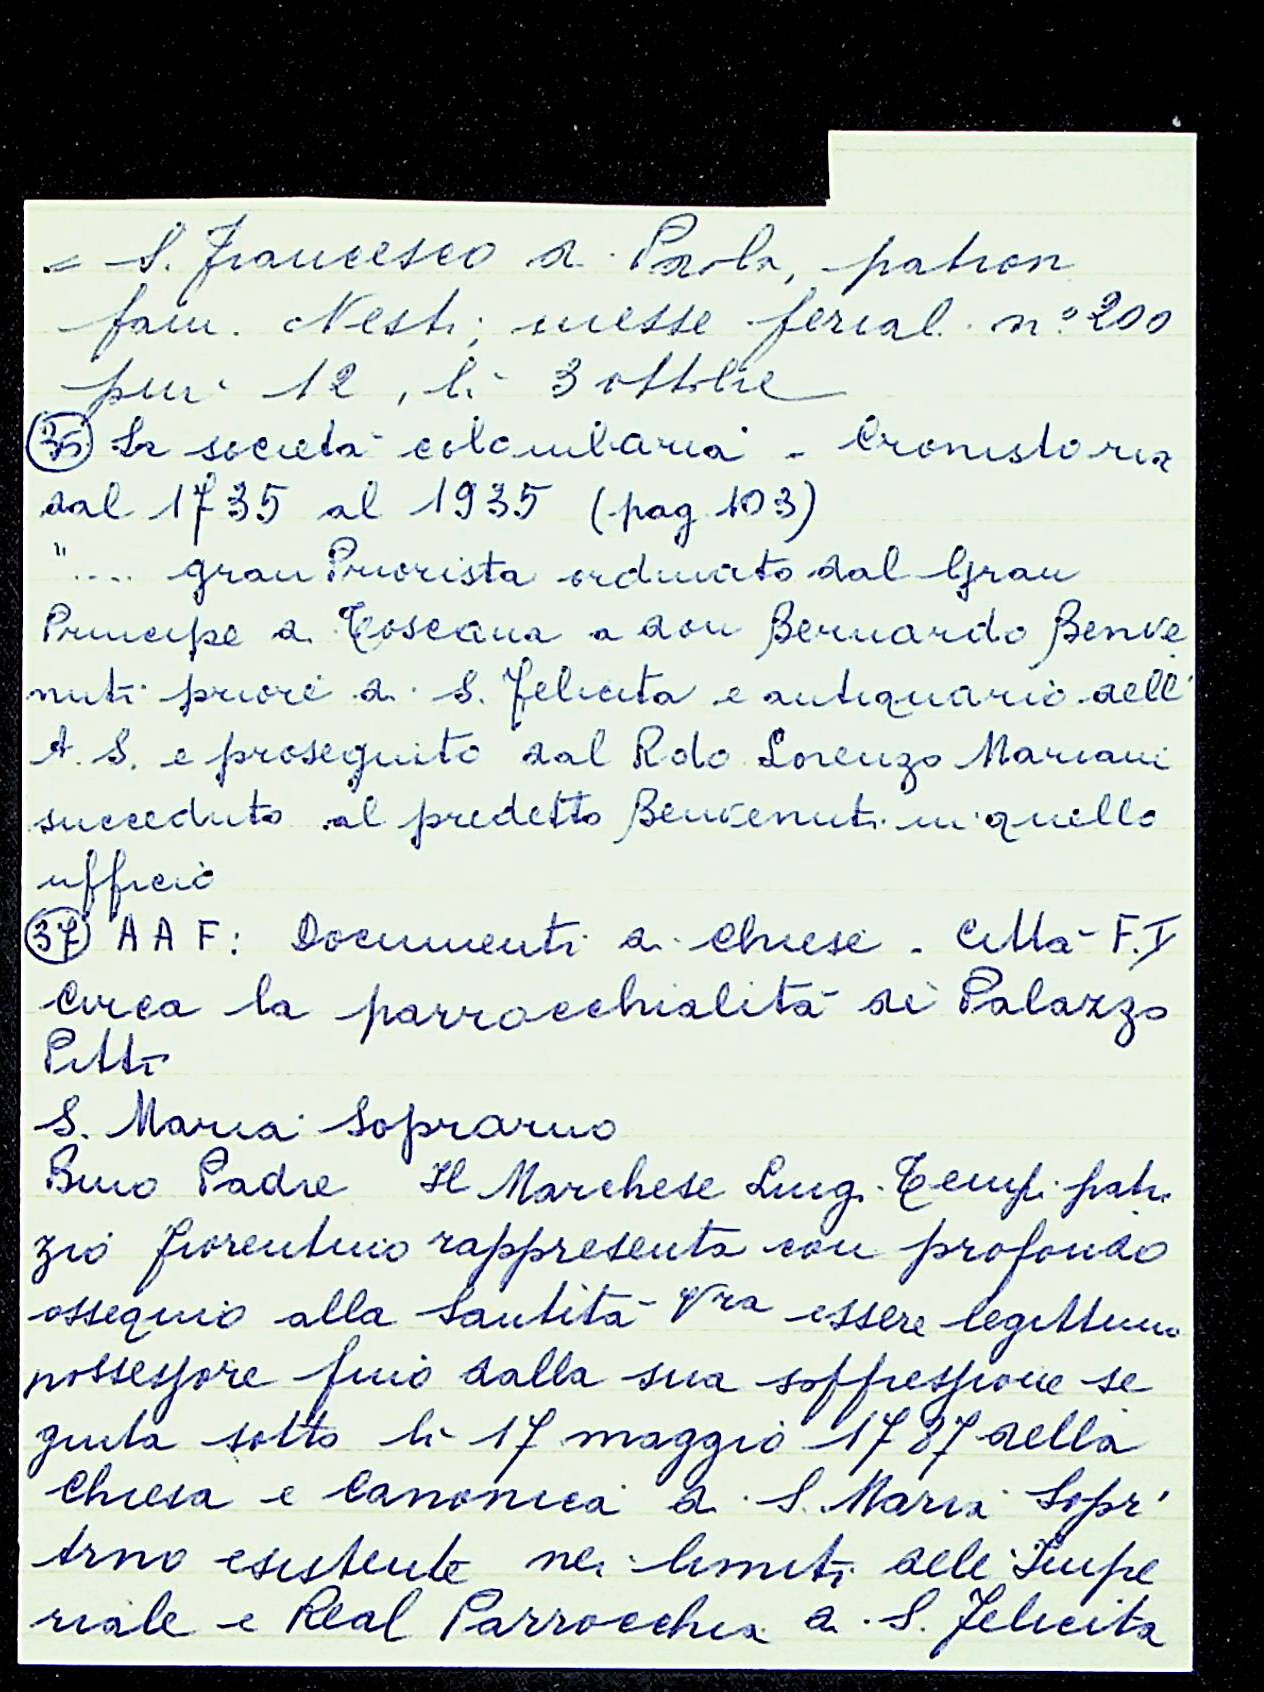 = S. Francesco di Paola, patron
fam. Nesti; messe ferial. n.° 200
piu 12, li 3 ottobre
35 La società colombaria - Cronistoria
dal 1735 al 1935 (pag 103)
".... gran Priorista ordinato dal Gran
Principe di Toscana a don Bernardo Benve
nuti priore di S. Felicita e antiquario dell'
A. S. e proseguito dal Rdo Lorenzo Mariani
succeduto al predetto Benvenuti in quello
ufficio
37 A A F: Documenti di chiese - città F. V
Circa la parrocchialità di Palazzo
Pitti
S. Maria Soprarno
Bmo Padre Il Marchese Luigi Tempi patri
zio fiorentino rappresenta con profondo
ossequio alla Santità Vra essere legittimo
possessore fino dalla sua soppressione se
guita sotto li 17 maggio 1787 della
Chiesa e Canonica di S. Maria Sopr'
Arno esistente nei limiti dell'Impe
riale e Real Parrocchia di S. Felicita